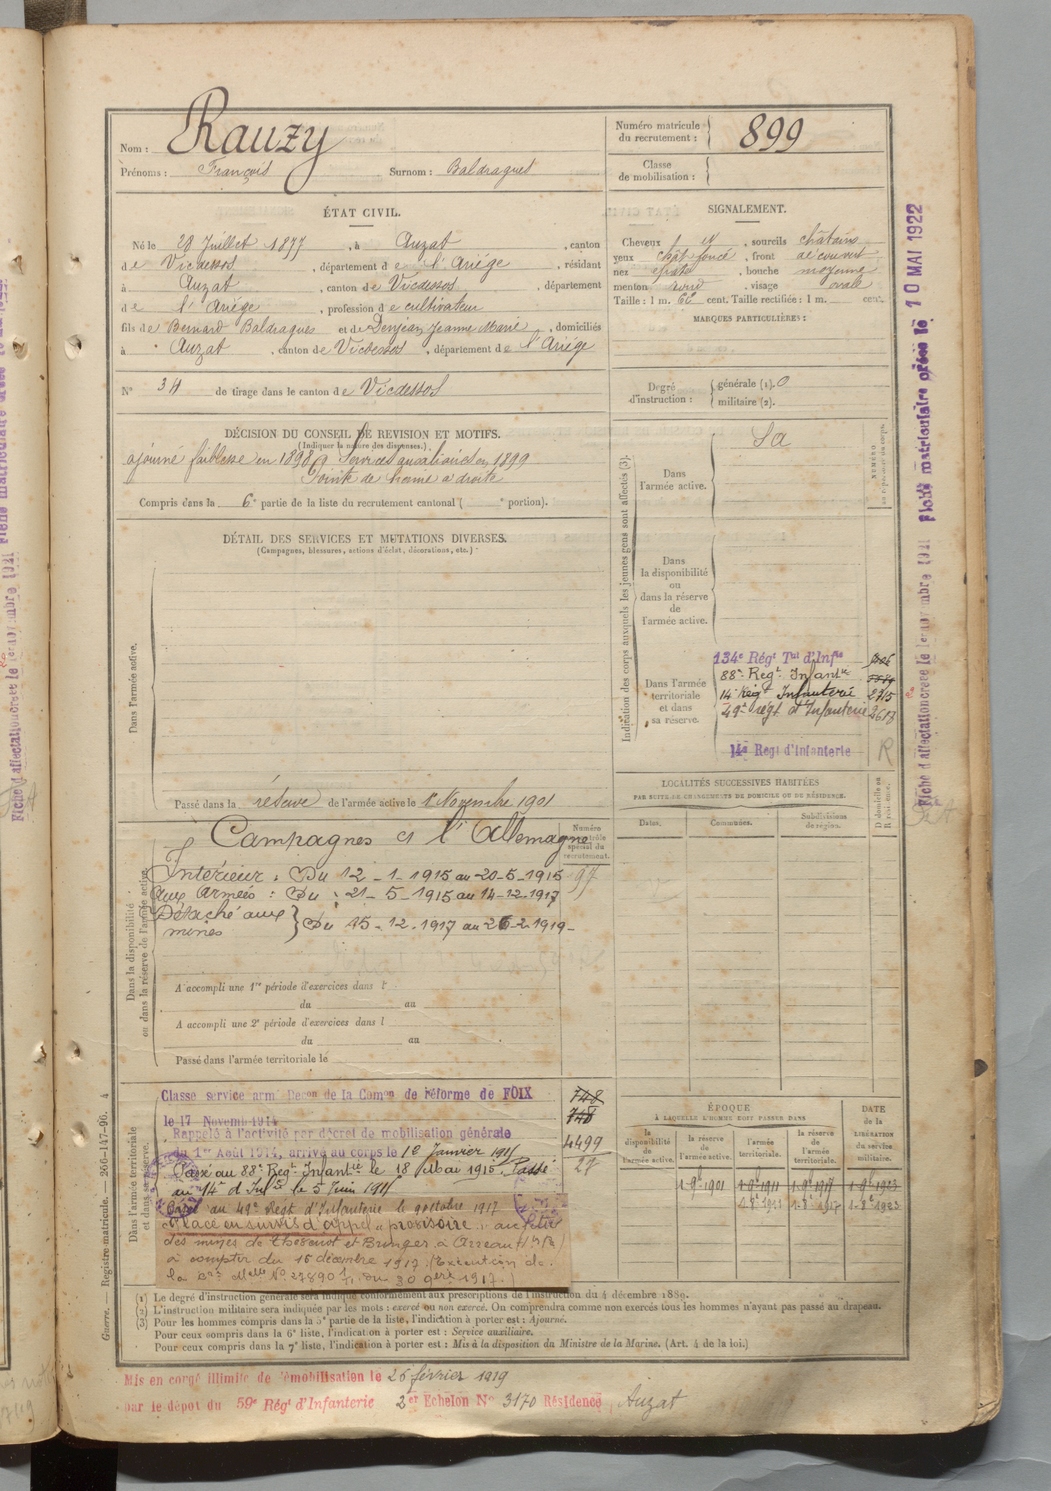 Nom : Rauzy
Prénoms : François Surnom : Baldragues
Numéro matricule
du recrutement : 899
Classe
de mobilisation :
ÉTAT CIVIL.
Né le 29 Juillet 1877, à Auzat, canton
de Vicdessos, département de l'Ariége, résidant
à Auzat, canton de Vicdessos, département
de l'Ariége, profession de cultivateur
fils de Bernard Baldragues et de Denjean Jeanne Marie, domiciliés
à Auzat, canton de Vicdessos, département de l'Ariége
N° 34 de tirage dans le canton de Vicdessos
SIGNALEMENT.
Cheveux et, sourcils châtains
yeux chât foncé, front découvert
nez épaté, bouche moyenne
menton rond, visage ovale
Taille : 1 m. 62 cent. Taille rectifiée : 1 m. cent.
MARQUES PARTICULIÈRES :
Degré
d'instruction :
générale (1). 0
militaire (2).
DÉCISION DU CONSEIL DE REVISION ET MOTIFS.
(Indiquer la nature des dispenses.)
ajourné faiblesse en 1898 Services auxiliaires en 1899
Pointe de hernie à droite
Compris dans la 6e partie de la liste du recrutement cantonal ( e portion).
DÉTAIL DES SERVICES ET MUTATIONS DIVERSES.
(Campagnes, blessures, actions d'éclat, décorations, etc.)
Dans l'armée active.
Passé dans la réserve de l'armée active le 1er Novembre 1901
Indication des corps auxquels les jeunes gens sont affectés (3).
Dans
l'armée active.
Sa
NUMÉRO
Dans
la disponibilité
ou
dans la réserve
de
l'armée active.
Dans l'armée
territoriale
et dans
sa réserve.
134e Régt Tal d'Inftie
88e Regt Infantie
14 Régt Infanterie 2715
49e regt d'Infanterie 2618
14e Regt d'Infanterie
R
LOCALITÉS SUCCESSIVES HABITÉES
PAR SUITE DE CHANGEMENTS DE DOMICILE OU DE RÉSIDENCE.
Dates.
Communes.
Subdivisions
de région.
D domicile ou
R résidence.
Dans la disponibilité
ou dans la réserve de l'armée active
Campagnes c/ l'Allemagne
Numéro
au contrôle
spécial du
recrutement.
97
Intérieur : Du 12 - 1 - 1915 au 20-5-1915
Aux Armées : Du 21 - 5 - 1915 au 14-12-1917
Détaché aux
mines
Du 15 - 12 - 1917 au 26-2-1919
A accompli une 1re période d'exercices dans l
du au
A accompli une 2e période d'exercices dans l
du au
Passé dans l'armée territoriale le
Dans l'armée territoriale
et dans sa réserve.
Classe service armé Decon de la Comon de réforme de FOIX
le 17 Novemb 1914
Rappelé à l'activité par décret de mobilisation générale
du 1er Août 1914, arrivé au corps le 12 Janvier 1915
Passé au 88e Regt Infantie le 18 Mai 1915. Passé
au 14e d'Infie le 5 Juin 1915
Passé au 49e Regt d'Infanterie le 9 octobre 1917
Placé en sursis d'appel "provisoire" au titre
des mines de et à Arreau
à compter du 15 décembre 1917 (Exécution de
la Cre Melle N° 27890 du 30 9bre 1917.)
748
748
4499
27
ÉPOQUE
À LAQUELLE L'HOMME DOIT PASSER DANS
la
disponibilité
de
l'armée active.
la réserve
de
l'armée active.
l'armée
territoriale.
la réserve
de
l'armée
territoriale.
DATE
de la
LIBÉRATION
du service
militaire.
1-9e-1901 1-9e-1911 1-9e-1917 1-9e-1923
(1) Le degré d'instruction générale sera indiqué conformément aux prescriptions de l'instruction du 4 décembre 1889.
(2) L'instruction militaire sera indiquée par les mots : exercé ou non exercé. On comprendra comme non exercés tous les hommes n'ayant pas passé au drapeau.
(3) Pour les hommes compris dans la 5e partie de la liste, l'indication à porter est : Ajourné.
Pour ceux compris dans la 6e liste, l'indication à porter est : Service auxiliaire.
Pour ceux compris dans la 7e liste, l'indication à porter est : Mis à la disposition du Ministre de la Marine. (Art. 4 de la loi.)
Guerre. — Registre matricule. — 266-147-96. 4
Mis en congé illimité de démobilisation le 26 février 1919
par le dépôt du 59e Régt d'Infanterie 2er Echelon N° 3170 Résidence Auzat
Fiche matriculaire créée le 10 MAI 1922